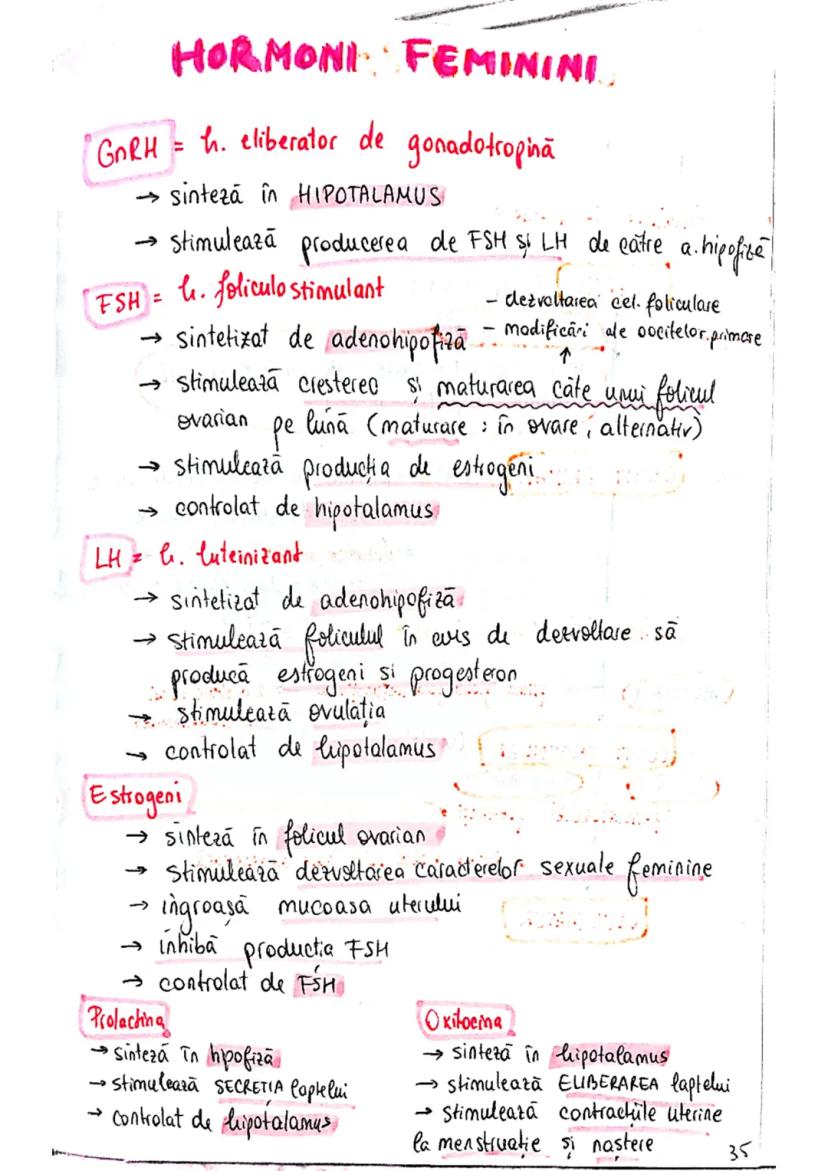 HORMONI FEMININI
GnRH = h. eliberator de gonadotropină
→ sinteză în HIPOTALAMUS
→ stimulează producerea de FSH și LH de către a.hipofiză
FSH = h. foliculostimulant
- dezvoltarea cel. foliculare
→ sintetizat de adenohipofiză
- modificări ale oocitelor primare
↑
→ stimulează creșterea și maturarea câte unui folicul
ovarian pe lună (maturare: în ovare, alternativ)
→ stimulează producția de estrogeni
→ controlat de hipotalamus
LH = h. luteinizant
→ sintetizat de adenohipofiză
→ stimulează foliculul în curs de dezvoltare să
producă estrogeni și progesteron
→ stimulează ovulația
→ controlat de hipotalamus
Estrogeni
→ sinteză în folicul ovarian
→ stimulează dezvoltarea caracterelor sexuale feminine
→ îngroașă mucoasa uterului
→ inhibă producția FSH
→ controlat de FSH
Prolactina
→ sinteză în hipofiză
→ stimulează SECREȚIA laptelui
→ controlat de hipotalamus
Oxitocina
→ sinteză în hipotalamus
→ stimulează ELIBERAREA laptelui
→ stimulează contracțiile uterine
la menstruație și naștere
35